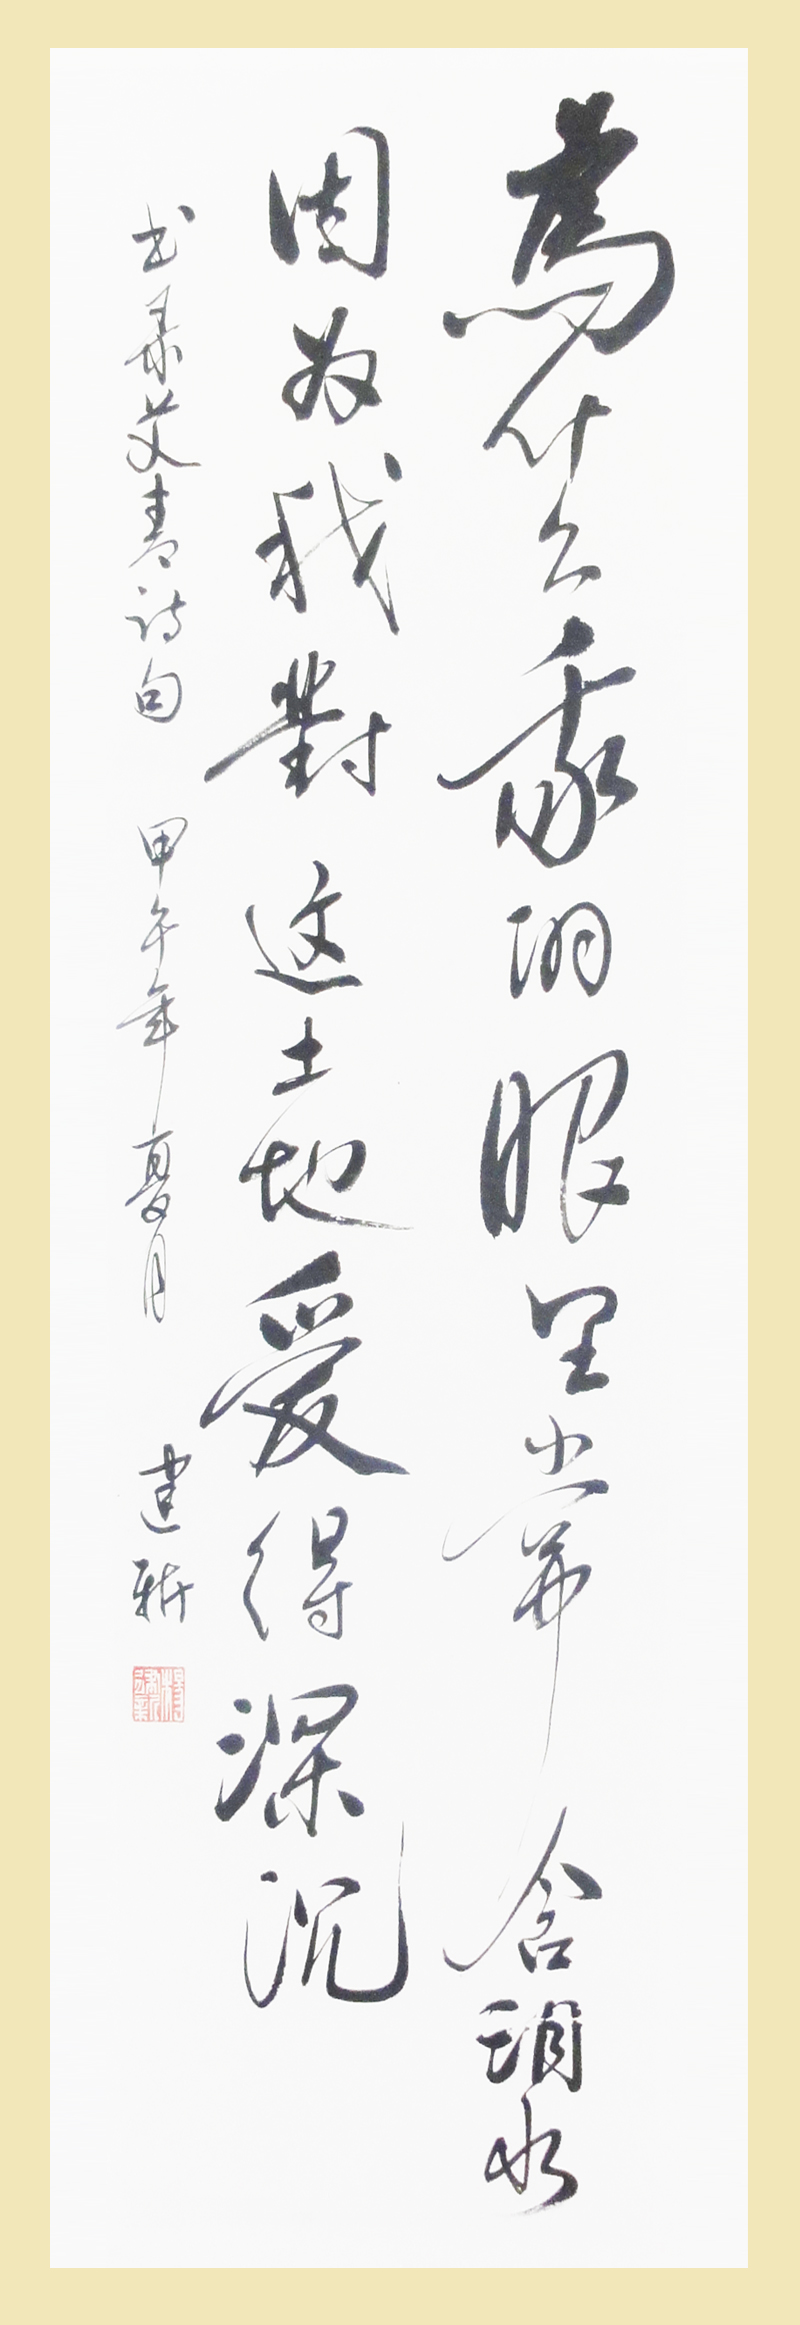 為什么我的眼里常含泪水
因为我對这土地爱得深沉
书录艾青诗句 甲午年夏月 建新